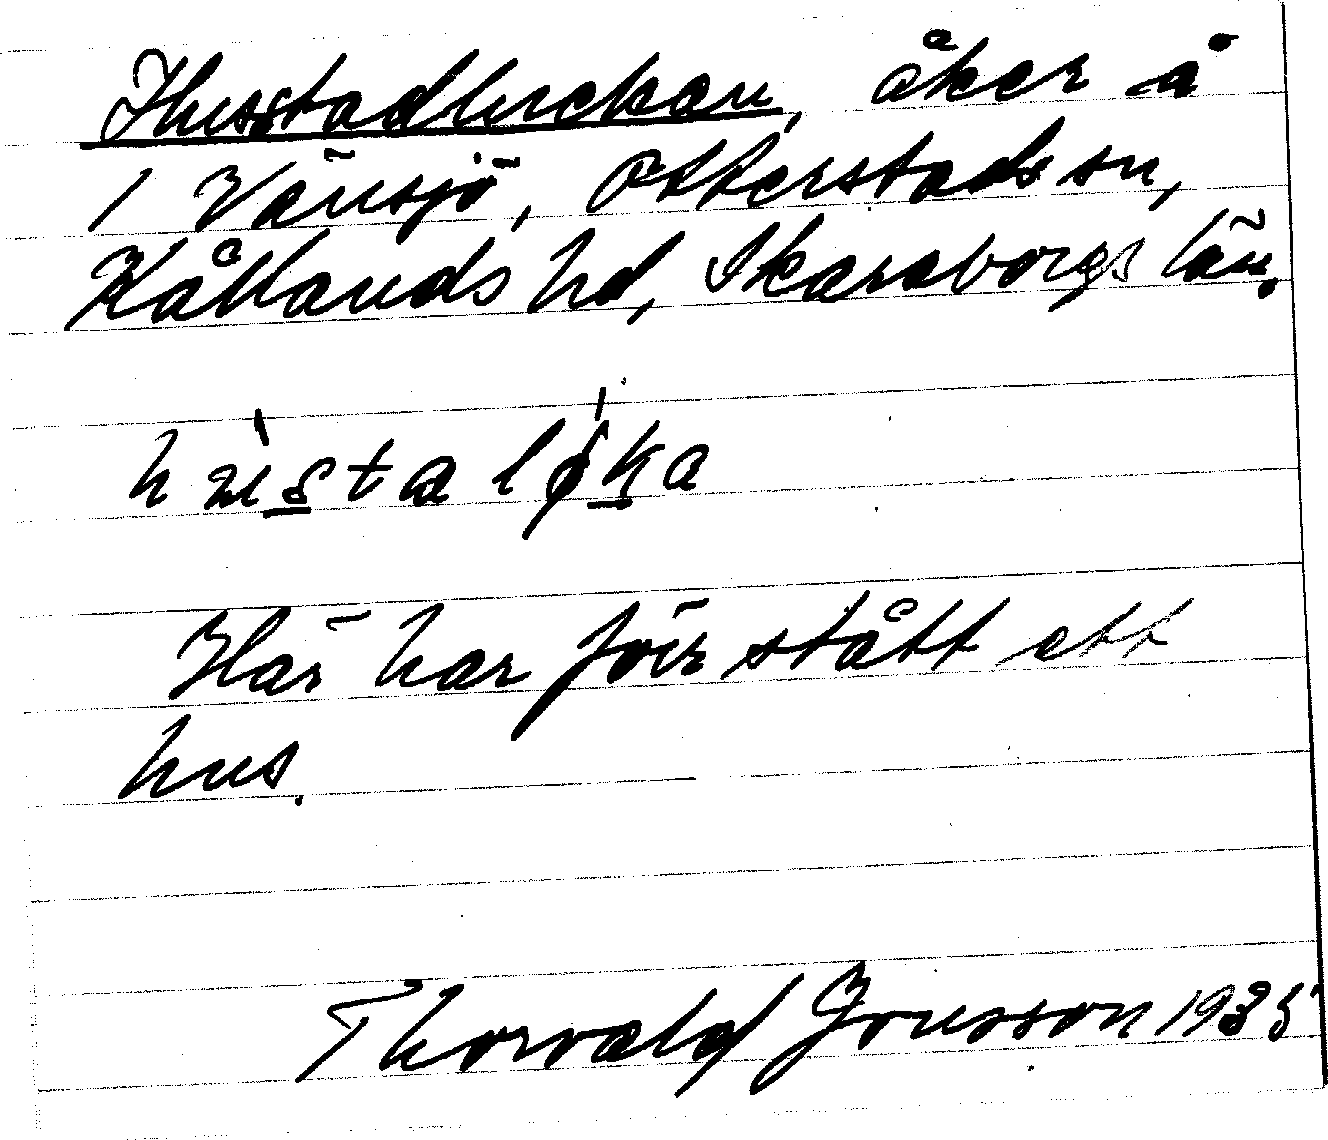 Husstadluckan, åker å
1 Vänsjö, Otterstads sn,
Kållands hd, Skaraborgs län.
Här har förr stått ett
hus.
Thorvald Jonsson 1935